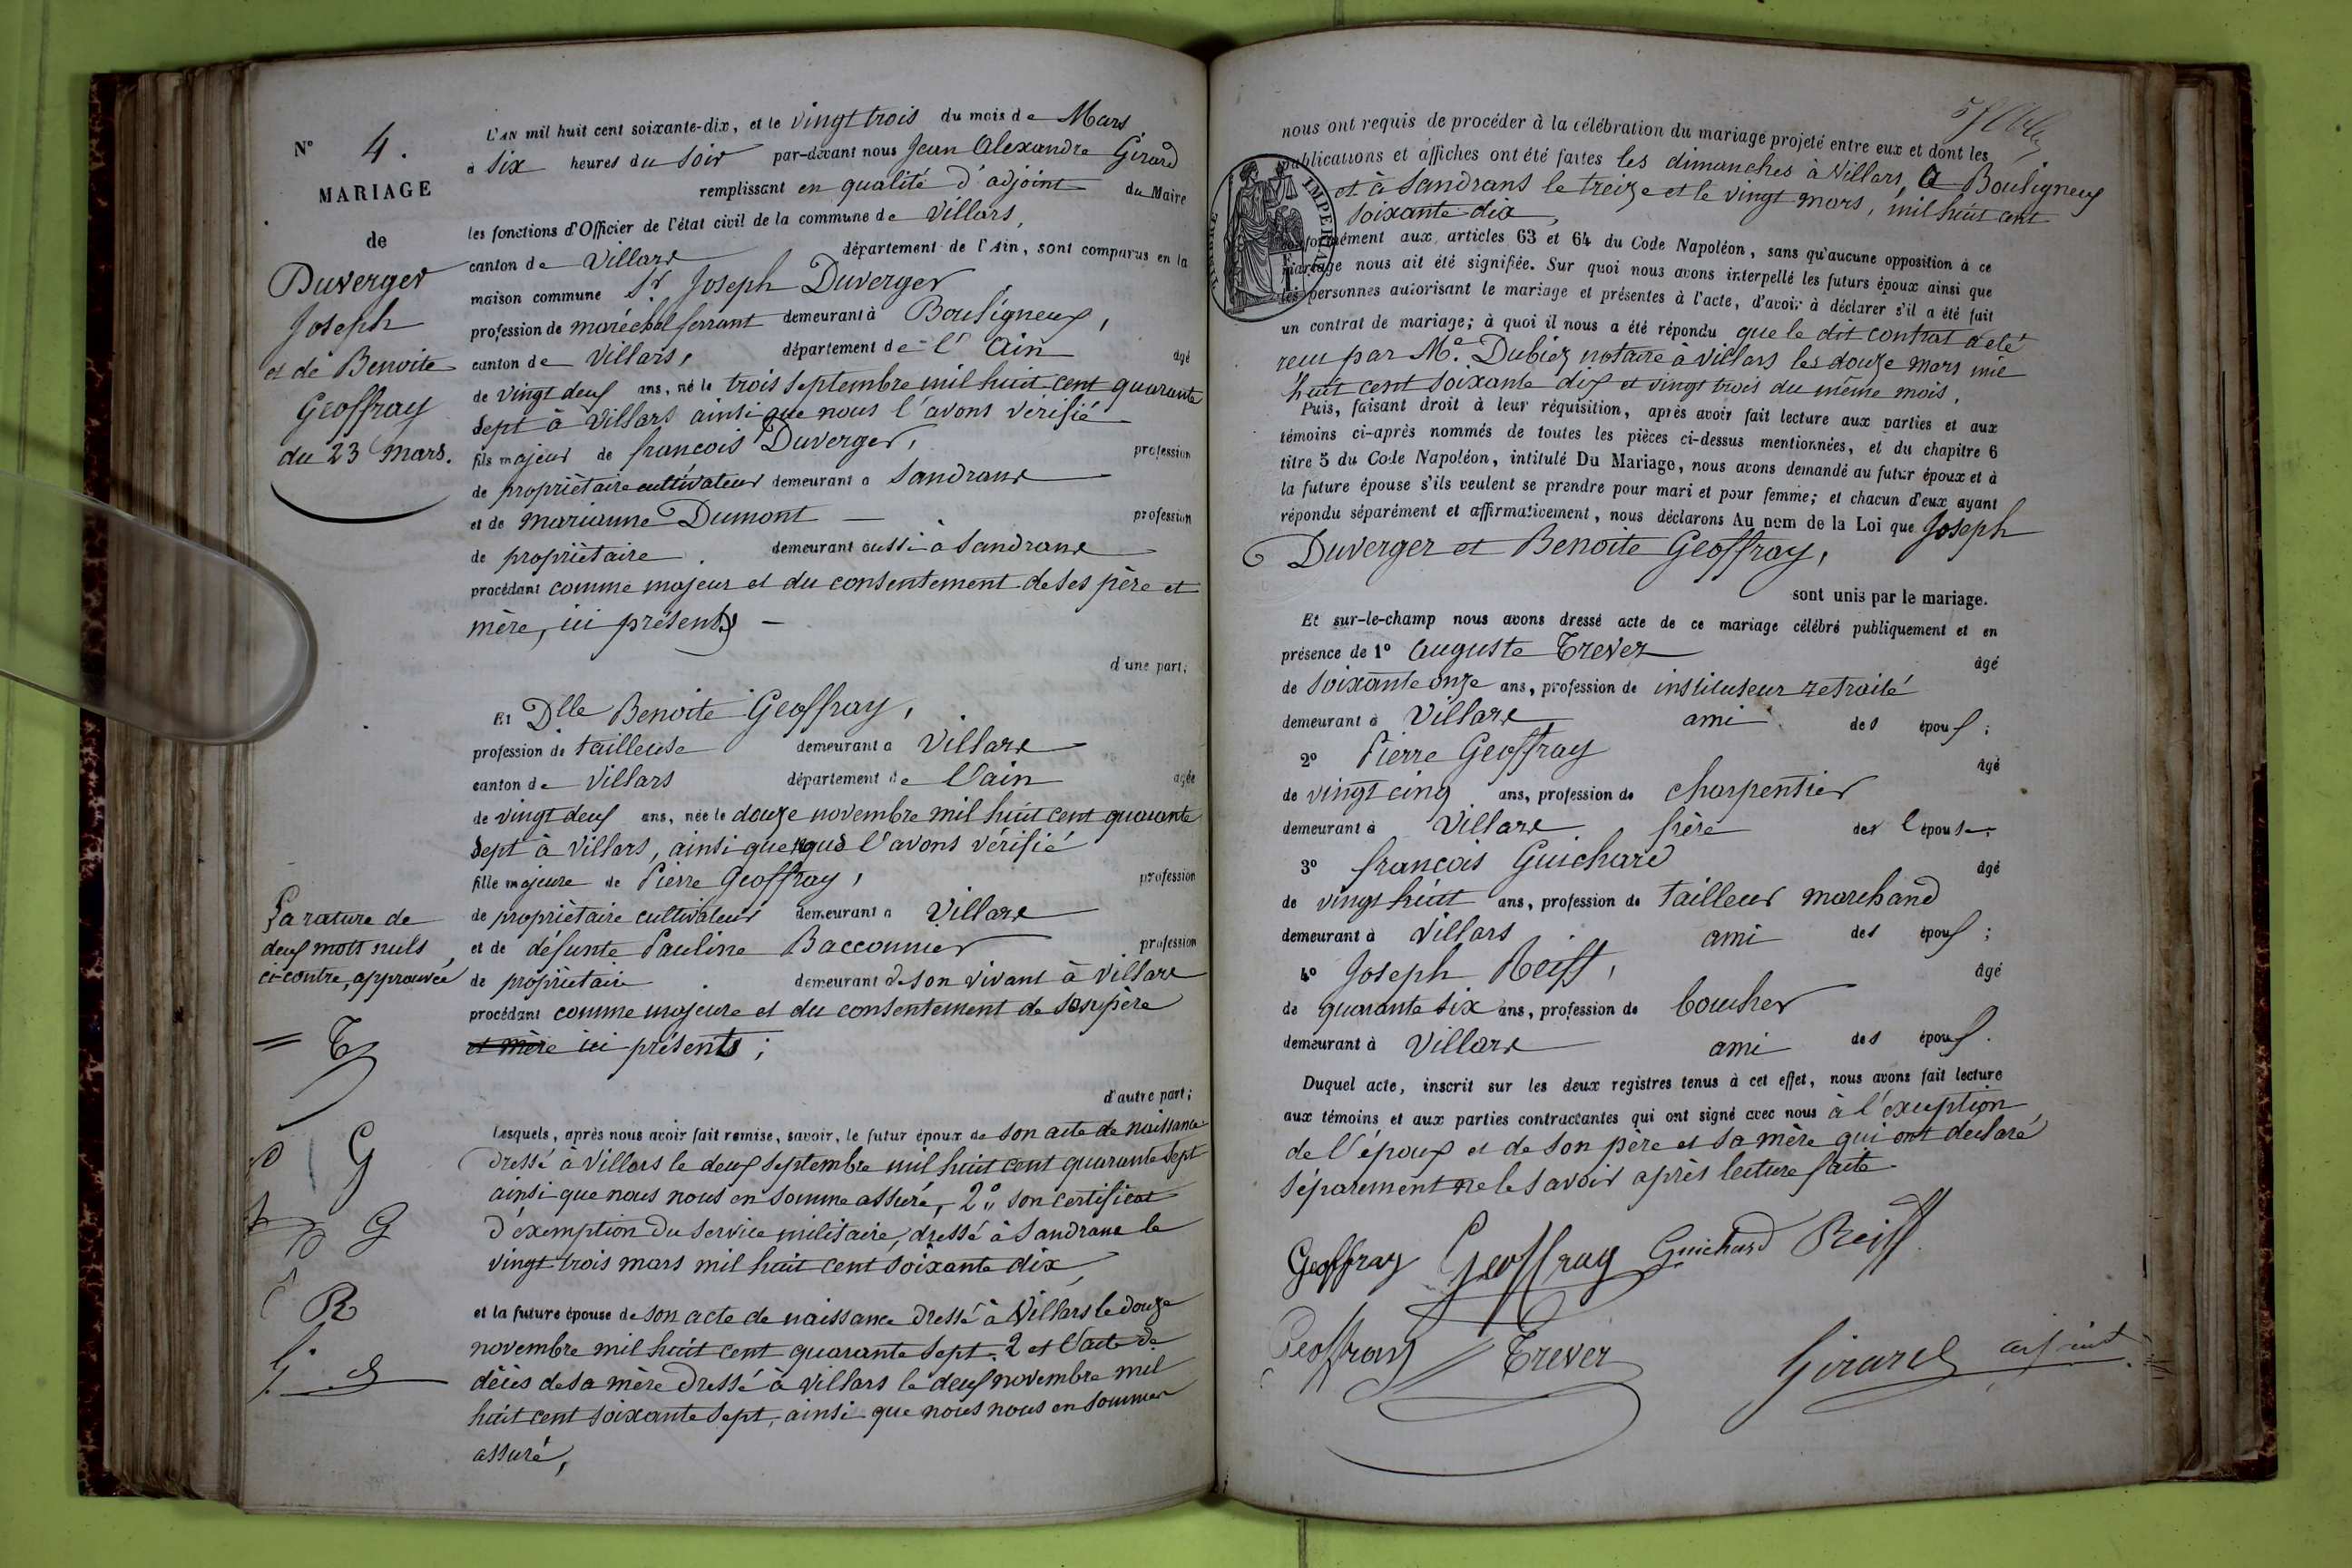 N° 4.
MARIAGE
de
Duverger
Joseph
et de Benoite
Geoffray
du 23 Mars.
L'AN mil huit cent soixante-dix, et le vingt trois du mois de Mars
à six heures du soir par-devant nous Jean Alexandre Girard
remplissant en qualité d'adjoint du Maire
les fonctions d'Officier de l'état civil de la commune de Villars,
canton de Villars département de l'Ain, sont comparus en la
maison commune Sr Joseph Duverger
profession de maréchal ferrant demeurant à Bouligneux,
canton de Villars, département de l'Ain âgé
de vingt deux ans, né le trois septembre mil huit cent quarante
sept à Villars ainsi que nous l'avons vérifié
fils majeur de francois Duverger, profession
de propriètaire cultivateur demeurant à Sandrans
et de marianne Dumont profession
de propriètaire demeurant aussi à Sandrans
procédant comme majeur et du consentement de ses père et
mère, ici présents
d'une part;
Et Dlle Benoite Geoffray,
profession de tailleuse demeurant à Villars
canton de Villars département de l'ain agée
de vingt deux ans, née le douze novembre mil huit cent quarante
sept à Villars, ainsi que nous l'avons vérifié
fille majeure de Pierre Geoffray, profession
de propriètaire cultivateur demeurant à Villars
et de défunte Pauline Bacconnier profession
de propriètaire demeurant de son vivant à Villars
procédant comme majeure et du consentement de son père
et mère ici présents;
d'autre part;
La rature de
deux mots nuls,
ci-contre, approuvée
T
G
G
R
G
Lesquels, après nous avoir fait remise, savoir, le futur époux de son acte de naissance
dressé à Villars le deux septembre mil huit cent quarante sept
ainsi que nous nous en somme assuré, 2° son certificat
d'éxemption du service militaire, dressé à Sandrans le
vingt trois mars mil huit cent soixante dix,
et la future épouse de son acte de naissance dressé à Villars le douze
novembre mil huit cent quarante sept. 2 et l'acte de
décès de sa mère dressé à Villars le deux novembre mil
huit cent soixante sept, ainsi que nous nous en sommes
assuré,
nous ont requis de procéder à la célébration du mariage projeté entre eux et dont les
publications et affiches ont été faites les dimanches à Villars, à Bouligneux
et à Sandrans le treize et le vingt mars, mil huit cent
soixante dix,
conformément aux articles 63 et 64 du Code Napoléon, sans qu'aucune opposition à ce
mariage nous ait été signifiée. Sur quoi nous avons interpellé les futurs époux ainsi que
les personnes autorisant le mariage et présentes à l'acte, d'avoir à déclarer s'il a été fait
un contrat de mariage; à quoi il nous a été répondu que le dit contrat a été
recu par Me. Dubiez notaire à Villars les douze mars mil
huit cent soixante dix et vingt trois du même mois.
Puis, faisant droit à leur réquisition, après avoir fait lecture aux parties et aux
témoins ci-après nommés de toutes les pièces ci-dessus mentionnées, et du chapitre 6
titre 5 du Code Napoléon, intitulé Du Mariage, nous avons demandé au futur époux et à
la future épouse s'ils veulent se prendre pour mari et pour femme; et chacun d'eux ayant
répondu séparément et affirmativement, nous déclarons Au nom de la Loi que Joseph
Duverger et Benoite Geoffray,
sont unis par le mariage.
Et sur-le-champ nous avons dressé acte de ce mariage célébré publiquement et en
présence de 1° Auguste Trever âgé
de soixante onze ans, profession de instituteur retraité
demeurant à Villars ami des époux;
2° Pierre Geoffray âgé
de vingt cinq ans, profession de charpentier
demeurant à Villars frère de l'épouse;
3° francois Guichard âgé
de vingt huit ans, profession de tailleur marchand
demeurant à Villars ami des époux;
4° Joseph Reiff, âgé
de quarante six ans, profession de boucher
demeurant à Villars ami des époux.
Duquel acte, inscrit sur les deux registres tenus à cet effet, nous avons fait lecture
aux témoins et aux parties contractantes qui ont signé avec nous à l'exception
de l'époux et de son père et sa mère qui ont declaré
séparement ne le savoir après lecture faite
Geoffray Geoffray Guichard Reiff
Geoffray Trever Girard adjoint